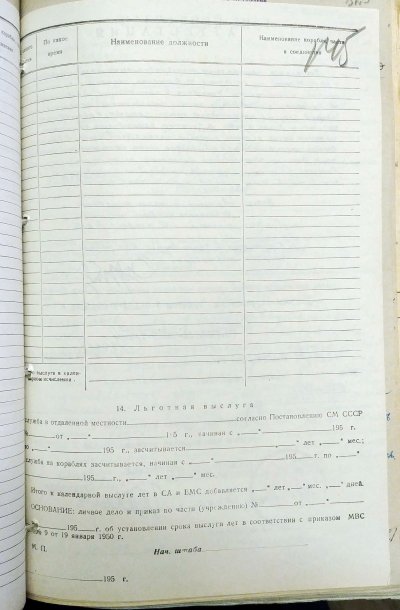 По какое
время
Наименование должности
Наименование корабля, части
и соединения
выслуга в кален-
исчислении
14. Льготная выслуга
служба в отдаленной местности согласно Постановлению СМ СССР
от „ “ 195 г., начиная с „ “ 195 г.
“ 195 г., засчитывается „ “ лет „ “ мес.;
служба на кораблях засчитывается, начиная с „ “ 195 г. по „ “
195 г., „ “ лет „ “ мес.
Итого к календарной выслуге лет в СА и ВМС добавляется „ “ лет „ “ мес. „ “ дней.
ОСНОВАНИЕ: личное дело и приказ по части (учреждению) № от „ “
195 г. об установлении срока выслуги лет в соответствии с приказом МВС
9 от 19 января 1950 г.
М. П.
Нач. штаба
195 г.